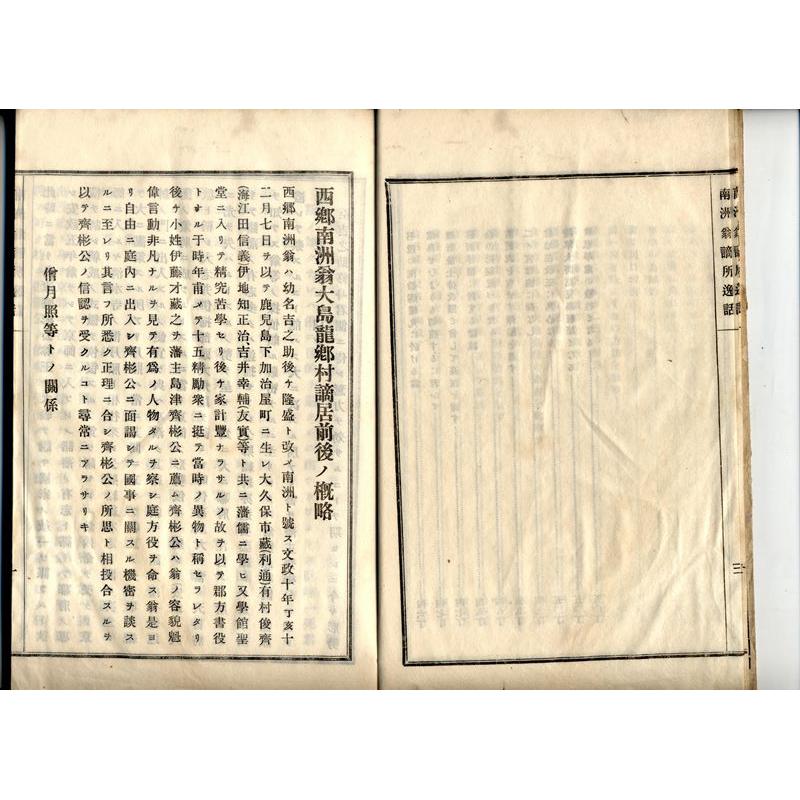 南洲翁謫所逸話
西鄕南洲翁大島龍鄕村謫居前後ノ槪略
西鄕南洲翁ハ幼名吉之助後チ隆盛ト改メ南洲ト號ス文政十年丁亥十
二月七日ヲ以テ鹿兒島下加治屋町ニ生レ大久保市藏(利通)有村俊齊
(海江田信義伊地知正治吉井幸輔(友實)等ト共ニ藩儒ニ學ヒ又學館聖
堂ニ入リテ精究苦學セリ後チ家計豐ナラサルノ故ヲ以テ郡方書役
トナル于時年甫メテ十五精勵衆ニ挺テ當時ノ異物ト稱セラレタリ
後チ小姓伊藤才藏之ヲ藩主島津齊彬公ニ薦ム齊彬公ハ翁ノ容貌魁
偉言動非凡ナルヲ見テ有爲ノ人物タルヲ察シ庭方役ヲ命ス翁是ヨ
リ自由ニ庭內ニ出入レ齊彬公ニ面謁シテ國事ニ關スル機密ヲ談ス
ルニ至レリ其言フ所悉ク正理ニ合シ齊彬公ノ所思ト相投合スルヲ
以テ齊彬公ノ信認ヲ受クルコト尋常ニアラサリキ
僧月照等トノ關係